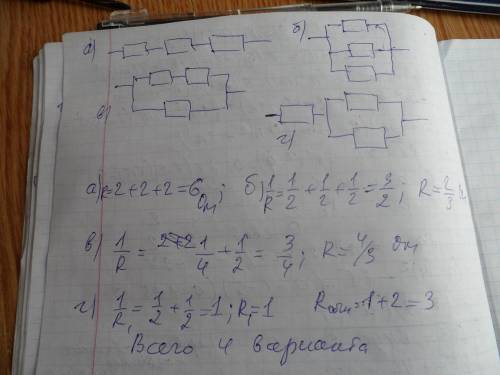 а)
б)
в)
г)
а) R=2+2+2=6 Ом; б) 1/R=1/2+1/2+1/2=3/2; R=2/3
в) 1/R = 1/4+1/2= 3/4; R=4/3 Ом
г) 1/R₁=1/2+1/2=1; R₁=1 Rобщ=1+2=3
Всего 4 варианта